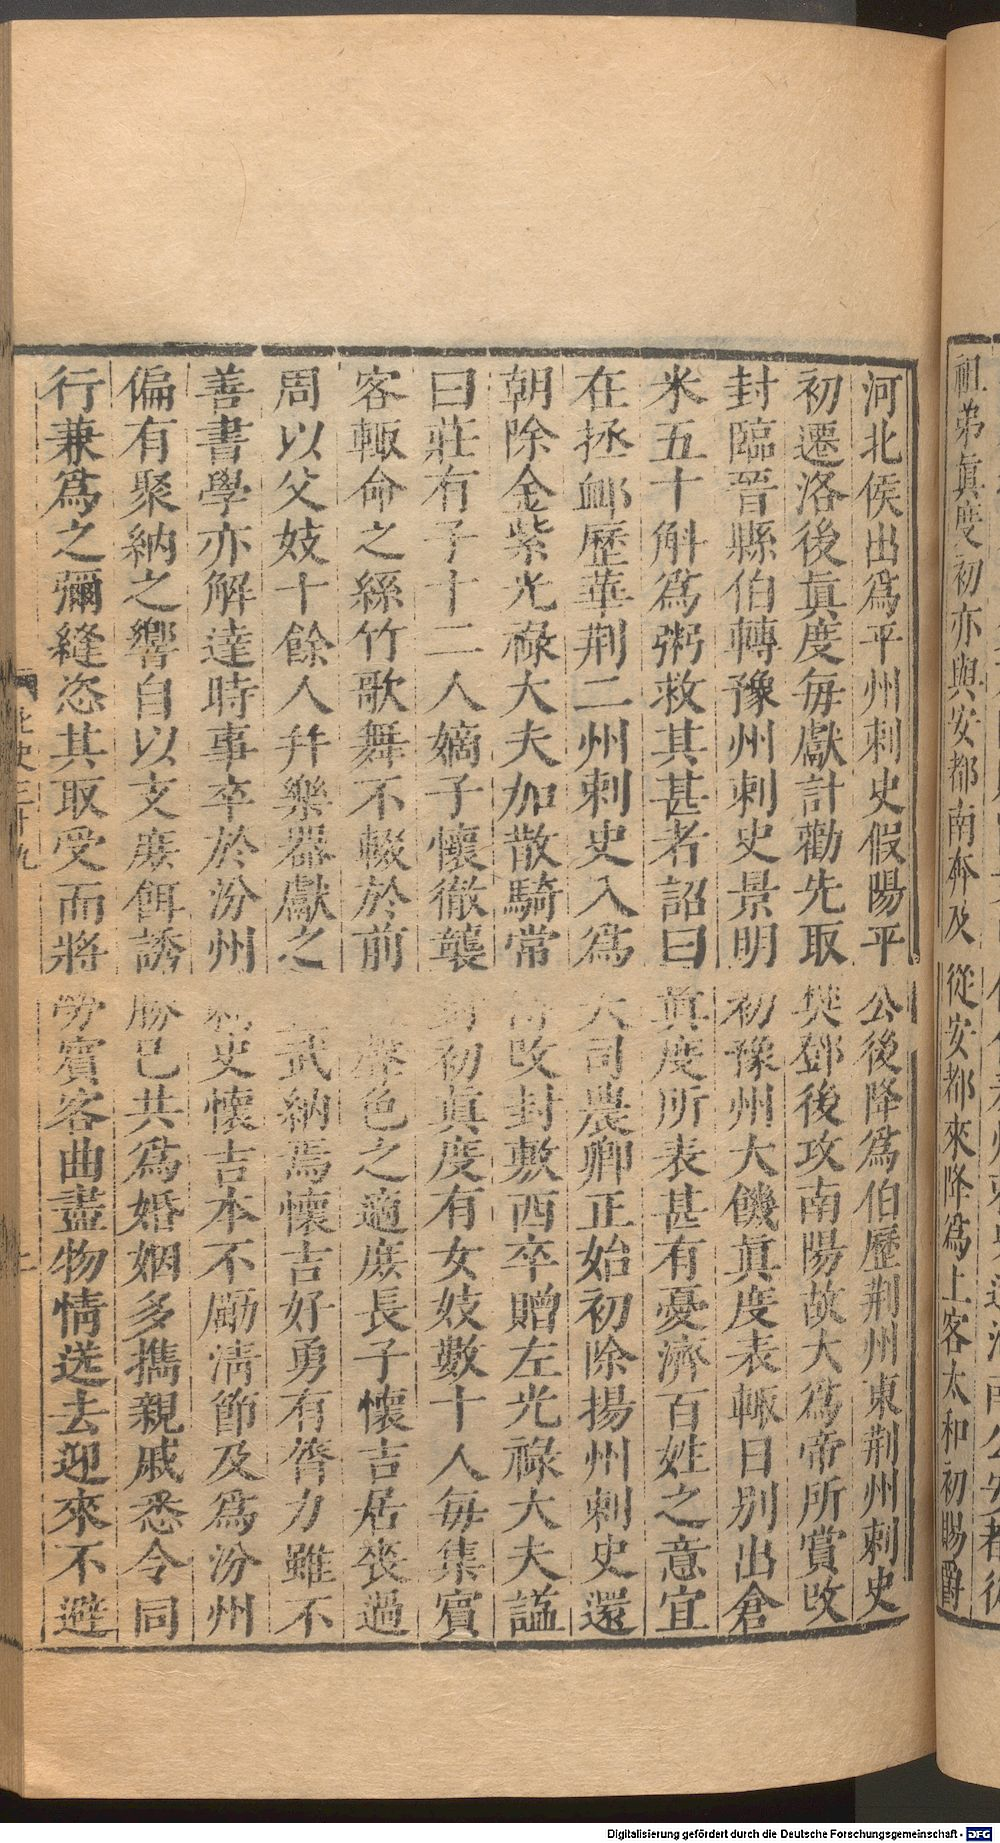 祖弟眞度初亦與安都南奔及從安都來降爲上客太和初賜爵
河北侯出爲平州刺史假陽平公後降爲伯歷荆州東荆州刺史
初遷洛後眞度每獻計勸先取樊鄧後攻南陽故大爲帝所賞改
封臨晉縣伯轉豫州刺史景明初豫州大饑眞度表輒日別出倉
米五十斛爲粥救其甚者詔曰眞度所表甚有憂濟百姓之意宜
在拯䘏歷華荆二州刺史入爲大司農卿正始初除揚州刺史還
朝除金紫光祿大夫加散騎常侍改封敷西卒贈左光祿大夫諡
曰莊有子十二人嫡子懷徹襲封初眞度有女妓數十人每集賓
客輒命之絲竹歌舞不輟於前聲色之適庶長子懷吉居喪過
周以父妓十餘人幷樂器獻之武納焉懷吉好勇有膂力雖不
善書學亦解達時事卒於汾州刺史懷吉本不厲清節及爲汾州
偏有聚納之響自以支庶餌誘勝已共爲婚姻多攜親戚悉令同
行兼爲之彌縫恣其取受而將勞賓客曲盡物情送去迎來不避
北史三十九
Digitalisierung gefördert durch die Deutsche Forschungsgemeinschaft - DFG